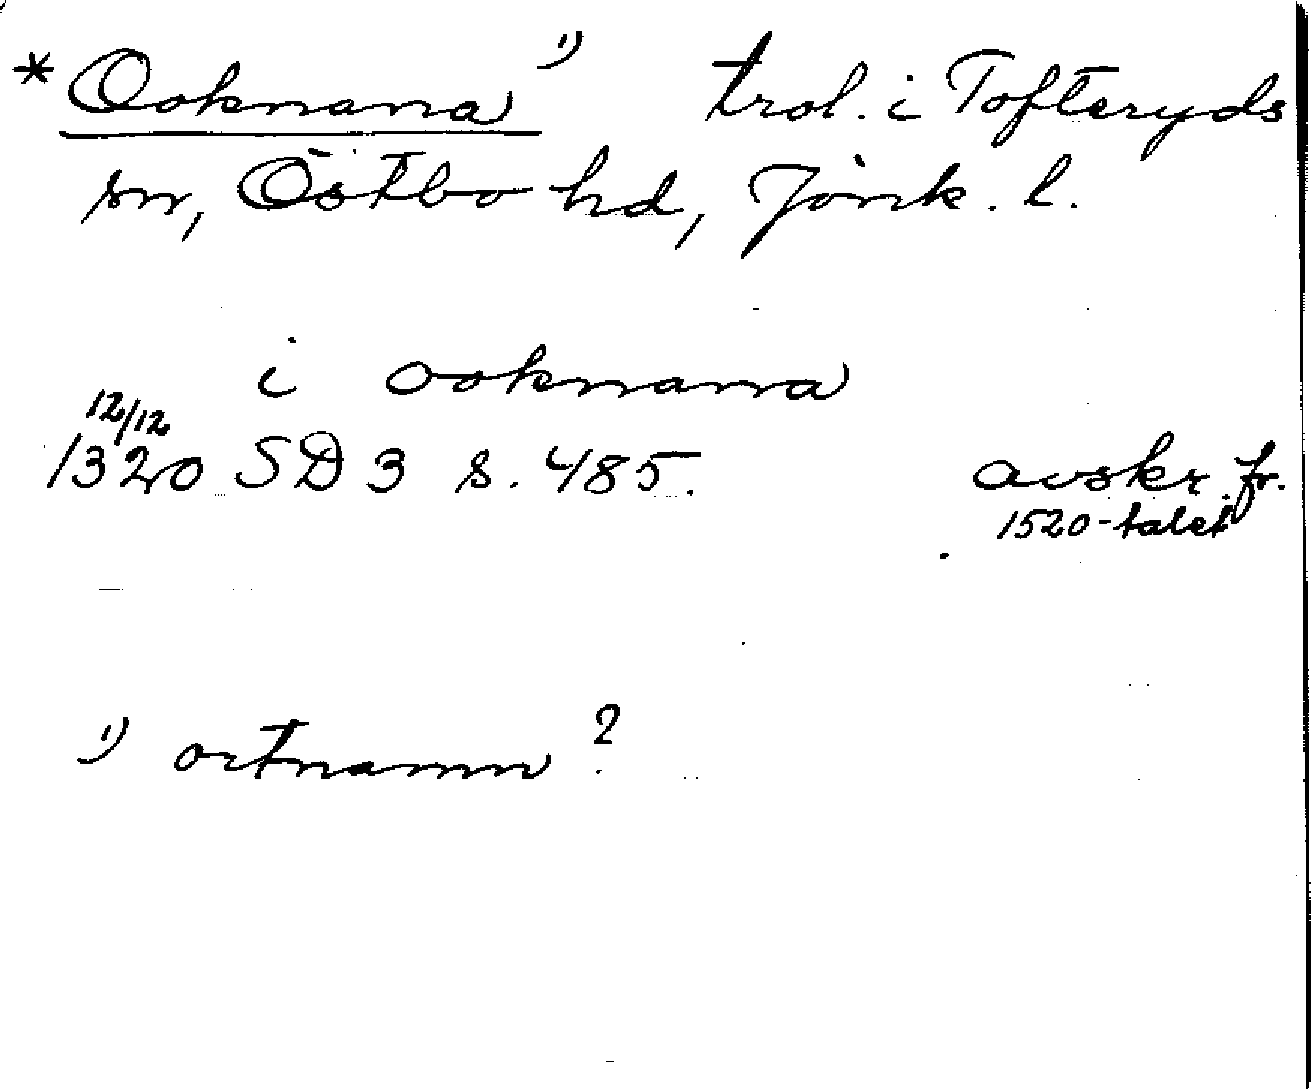 * Ooknana ¹⁾ trol. i Tofteryds
sn, Östbo hd, Jönk. l.
i ooknana
12/12
1320 SD 3 s. 485. avskr. fr.
1520-talet
¹⁾ ortnamn ?